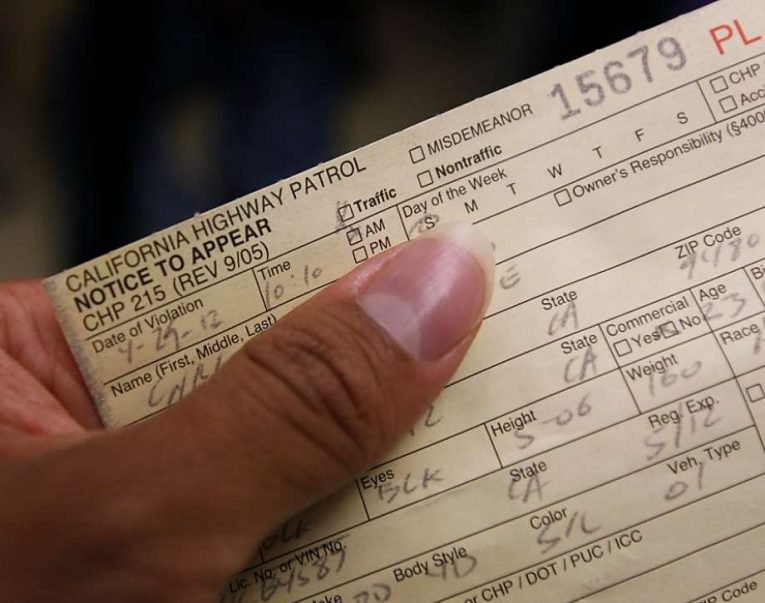 15679 PL
MISDEMEANOR
CALIFORNIA HIGHWAY PATROL
Nontraffic
CHP
NOTICE TO APPEAR
Traffic
Day of the Week
CHP 215 (REV 9/05)
AM
PM
S M T W T F S
Owner's Responsibility (§400
Date of Violation
Time
4-29-12
10:10
ZIP Code
Name (First, Middle, Last)
State
CA
Commercial
Yes No
Age
23
State
CA
Weight
160
Race
Height
5-06
Reg. Exp.
5/12
Eyes
BLK
State
CA
Veh. Type
01
BLK
Lic. No. or VIN No.
Color
SIL
Body Style
4D
or CHP / DOT / PUC / ICC